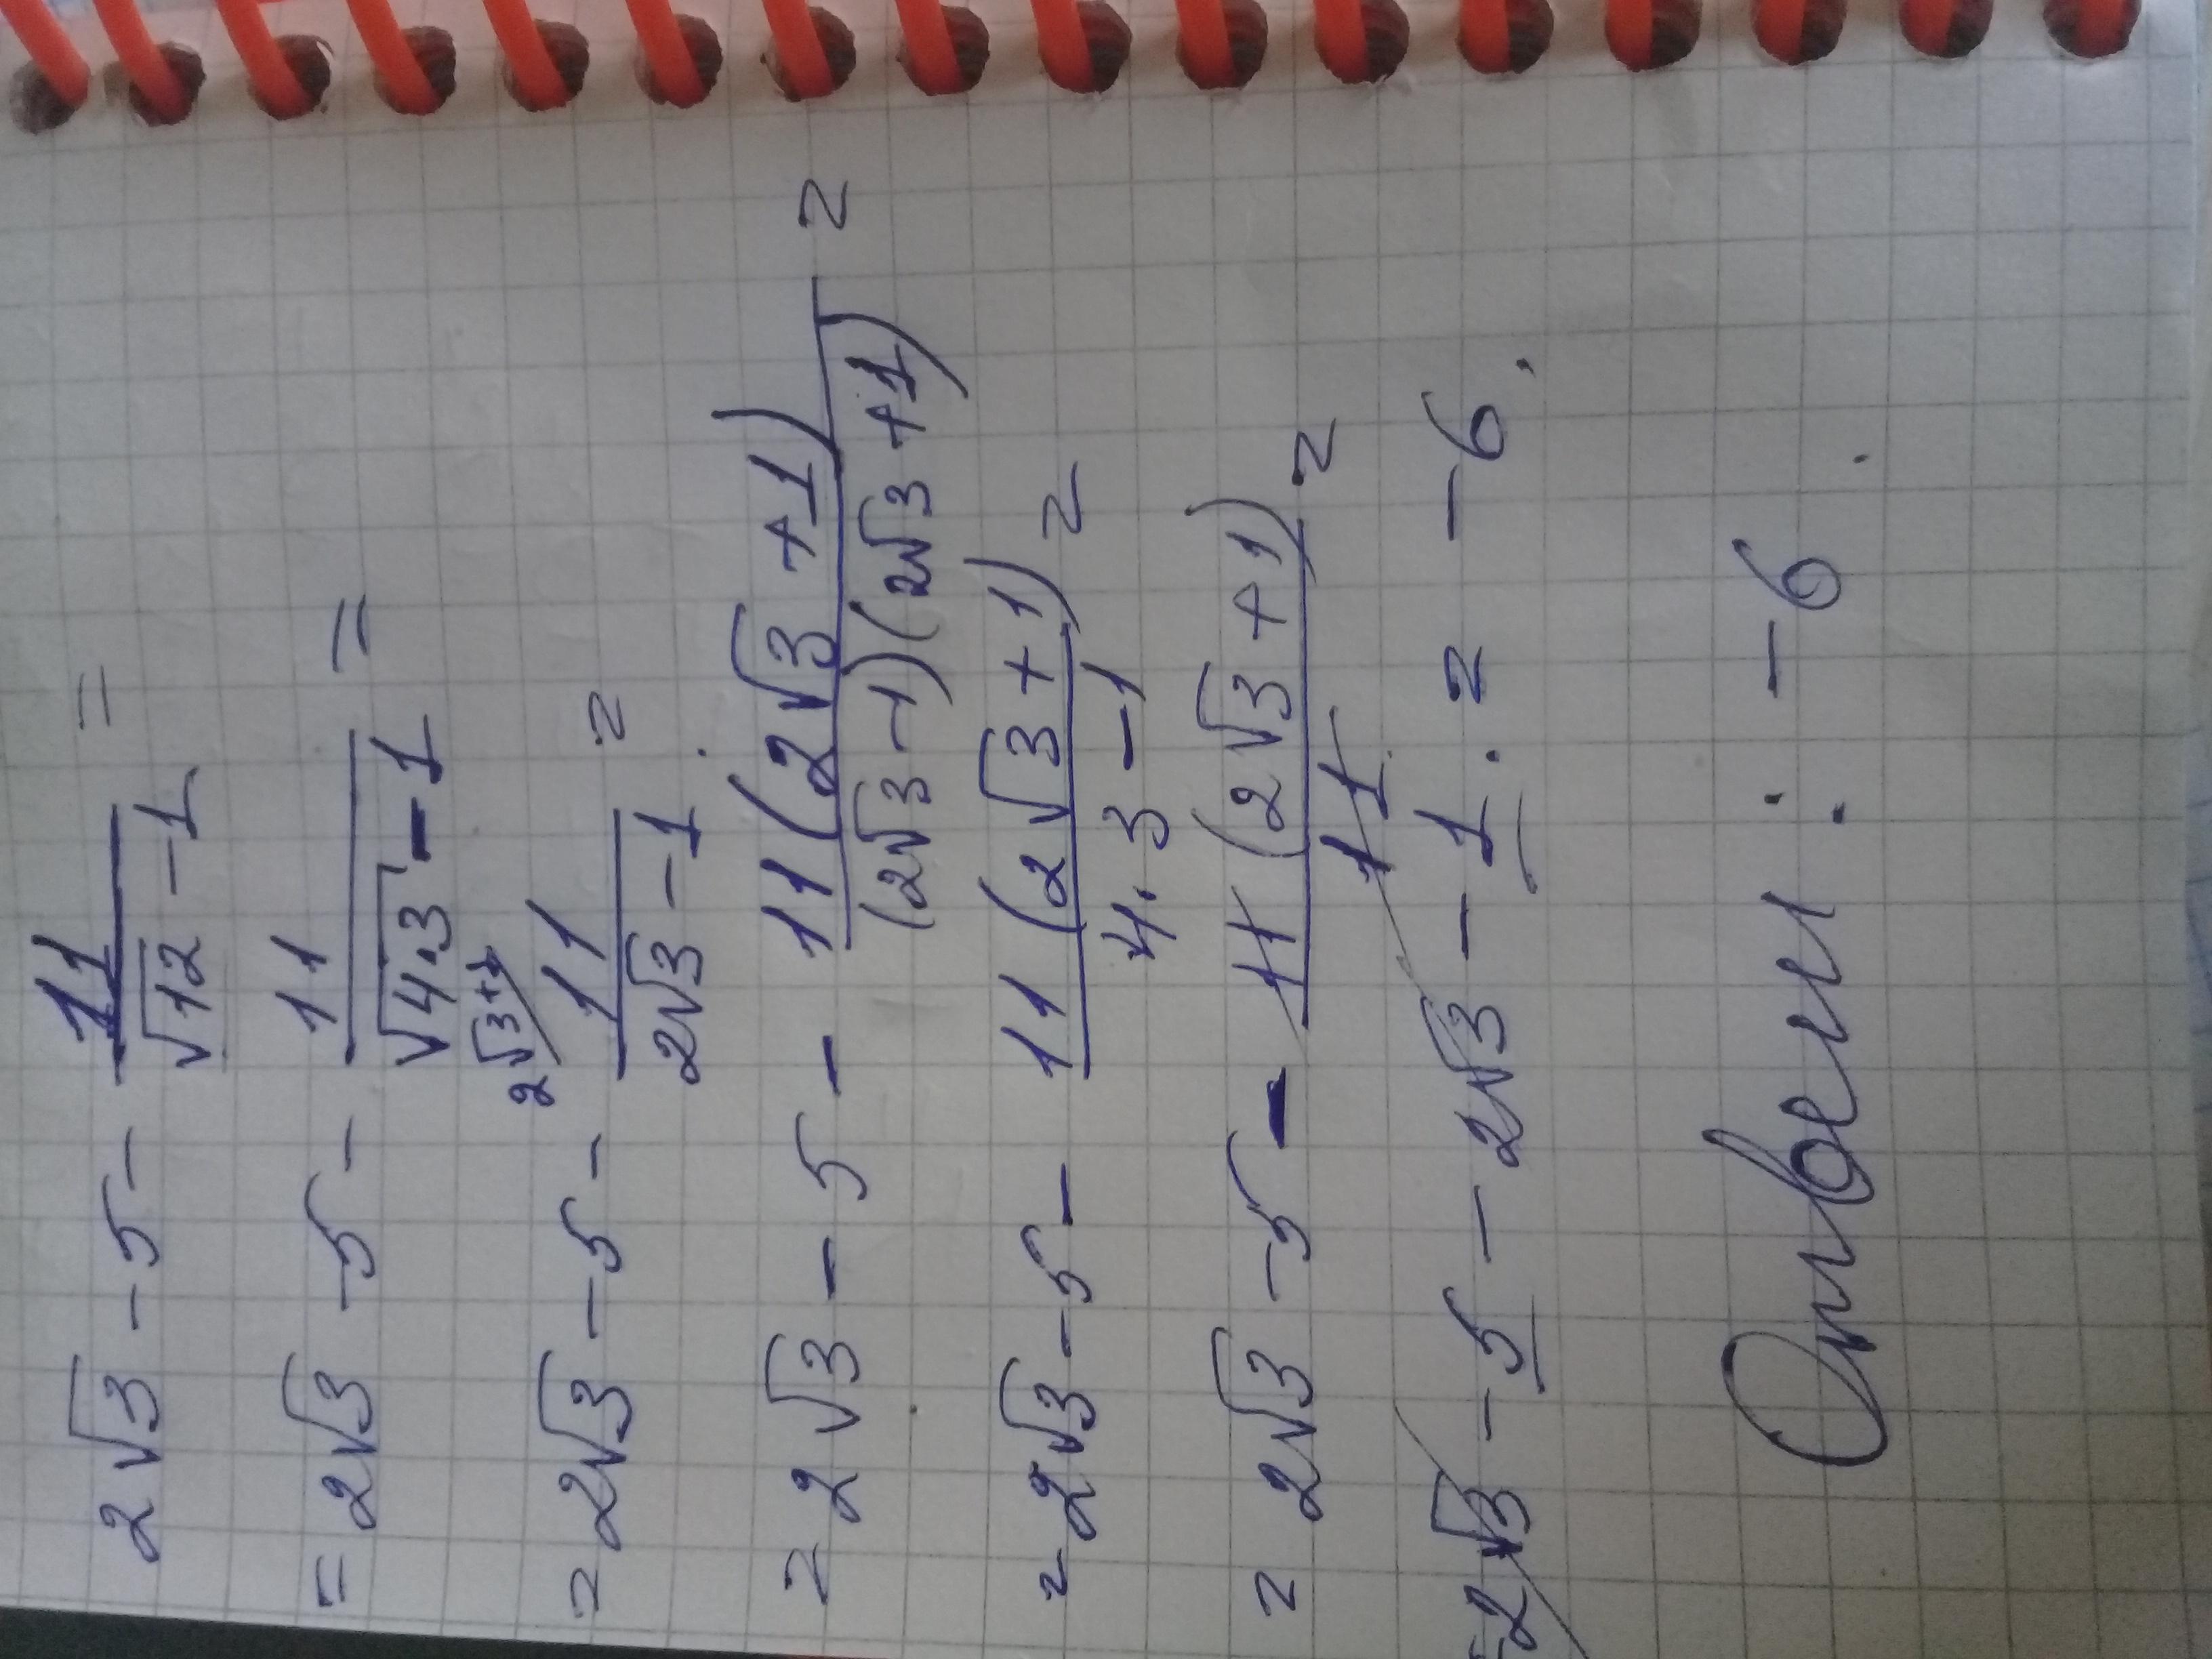 2√3 - 5 - 11/(√12 - 1) =
= 2√3 - 5 - 11/(√4·3 - 1) =
= 2√3 - 5 - 11/(2√3 - 1) (2√3+1 =
= 2√3 - 5 - 11(2√3 + 1)/((2√3 - 1)(2√3 + 1)) =
= 2√3 - 5 - 11(2√3 + 1)/(4·3 - 1) =
= 2√3 - 5 - 11(2√3 + 1)/11 =
= 2√3 - 5 - 2√3 - 1 = -6.
Ответ: -6.